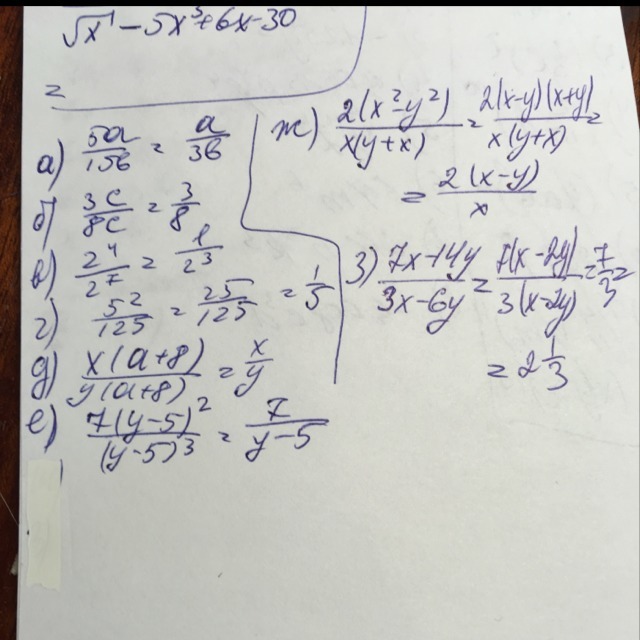 √x¹ - 5x³ + 6x - 30
=
а) 5a/15b = a/3b
б) 3c/8c = 3/8
в) 2⁴/2⁷ = 1/2³
г) 5²/125 = 25/125 = 1/5
д) x(a+8)/y(a+8) = x/y
е) 7(y-5)²/(y-5)³ = 7/y-5
ж) 2(x²y²)/x(y+x) = 2(x-y)(x+y)/x(y+x) =
= 2(x-y)/x
з) 7x-14y/3x-6y = 7(x-2y)/3(x-2y) = 7/3 =
= 2 1/3